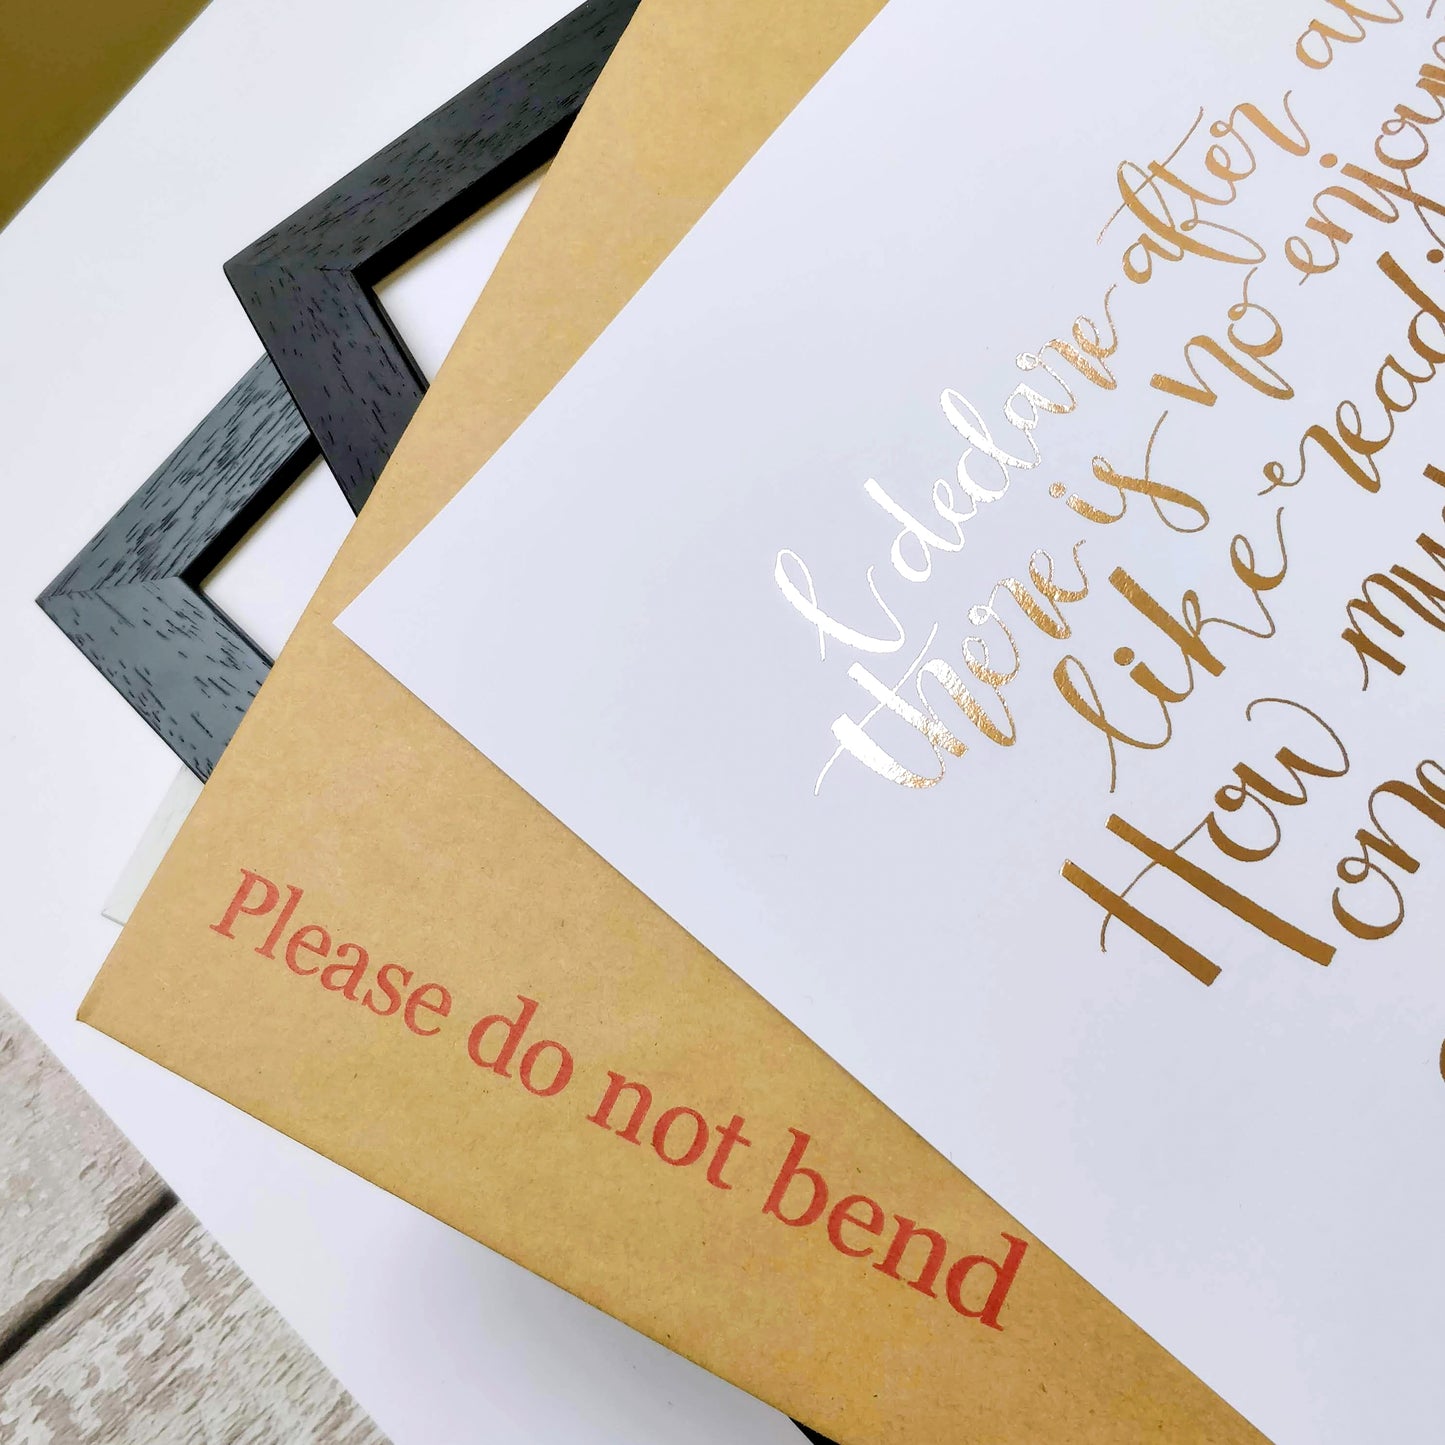 I declare after
there is no enjoym
like readi
How mu
one
Please do not bend